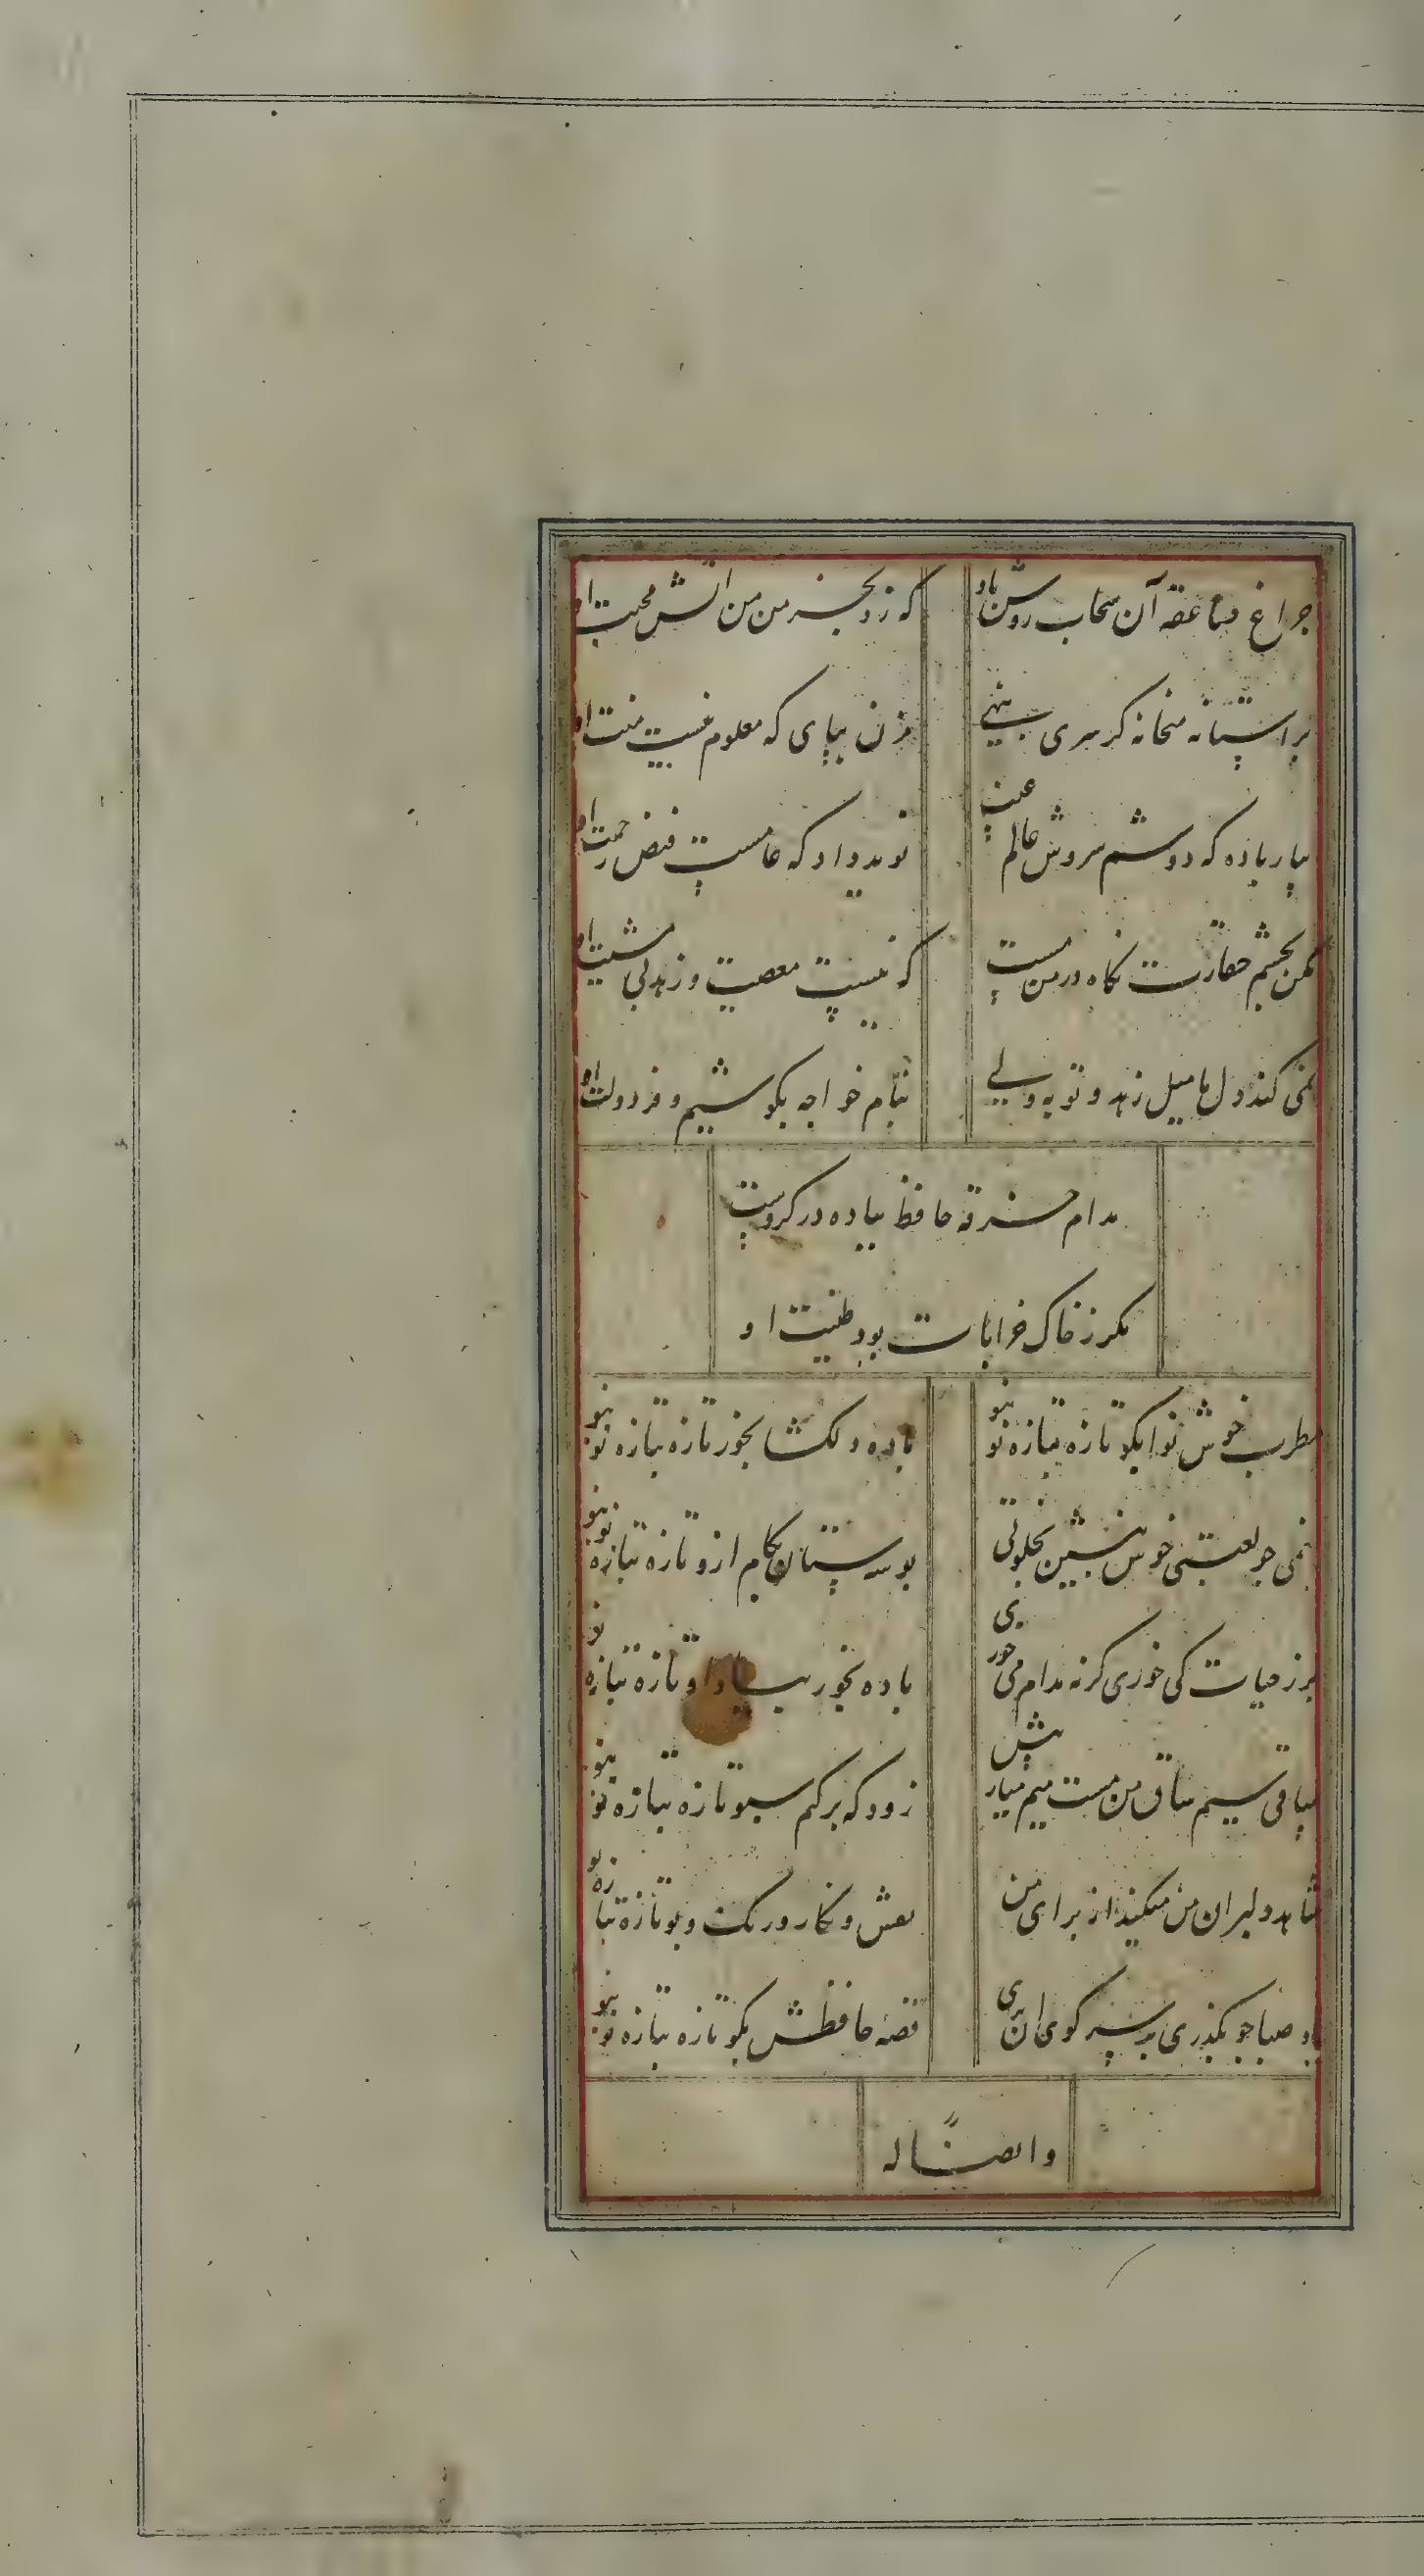 چراغ صاعقه آن سحاب روشن باد
که زد بخرمن من اتش محبت او
بر استانه میخانه گر سری بینی
مزن بپای که معلوم نیست نیت او
بیار باده که دوشم سروش عالم غیب
نوید داد که عامست فیض رحمت او
مکن بچشم حقارت نگاه در من مست
که نیست معصیت و زهد بی مشیت او
نمی کند دل ما میل زهد و توبه ولی
بنام خواجه بکوشیم و فر دولت او
مدام خرقه حافظ بباده در گروست
مگر ز خاک خرابات بود طینت او
مطرب خوش نوا بگو تازه بتازه نو بنو
باده دلکشا بخور تازه بتازه نو بنو
نمی چو لعبتی خوش بنشین بخلوتی
بوسه ستان بکام ازو تازه بتازه نو بنو
بر ز حیات کی خوری گر نه مدام می خوری
باده بخور بیاد او تازه بتازه نو
ساقی سیم ساق من مست میم بیار پیش
زود که پر کم سبو تازه بتازه نو بنو
شاهد دلبران من میکند از برای من
نقش و نگار و رنگ و بو تازه بتازه نو
باد صبا چو بگذری بر سر کوی ان پری
قصه حافظش بگو تازه بتازه نو بنو
و ایضاً له